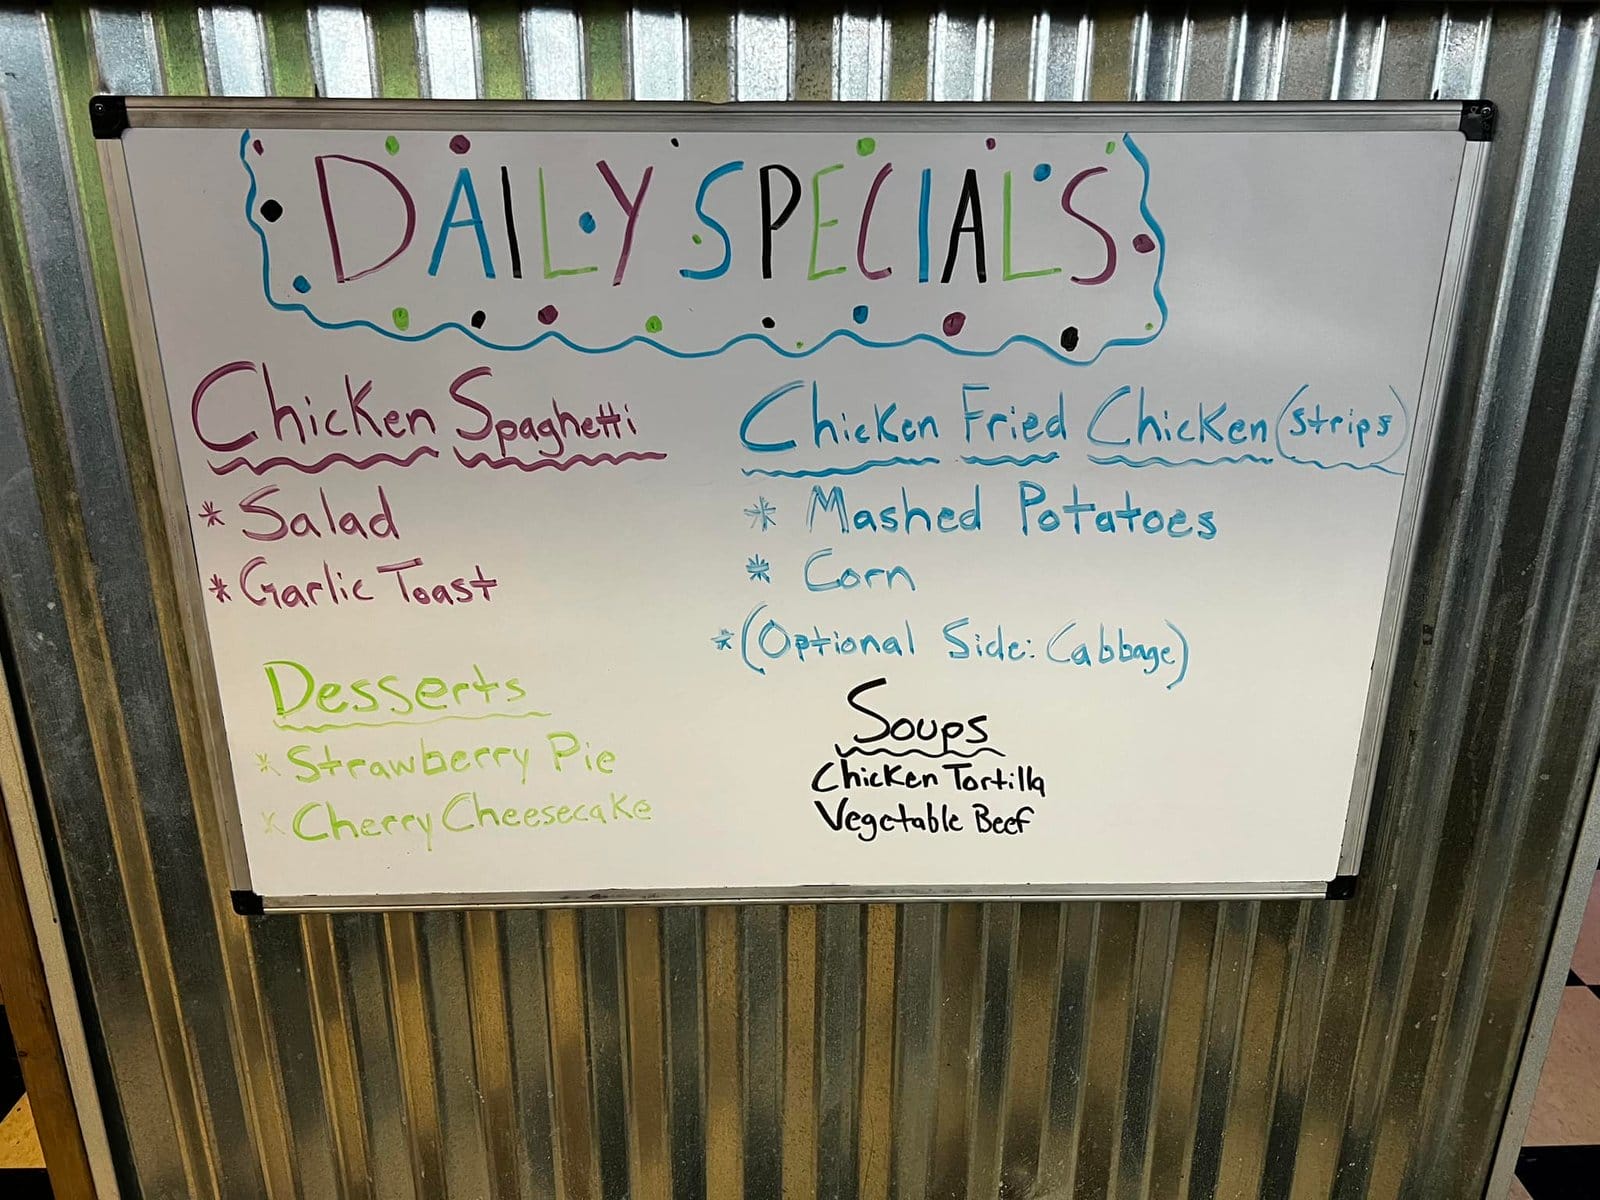 DAILY SPECIALS
Chicken Spaghetti
* Salad
* Garlic Toast
Desserts
* Strawberry Pie
* Cherry Cheesecake
Chicken Fried Chicken (Strips)
* Mashed Potatoes
* Corn
* (Optional Side: Cabbage)
Soups
Chicken Tortilla
Vegetable Beef